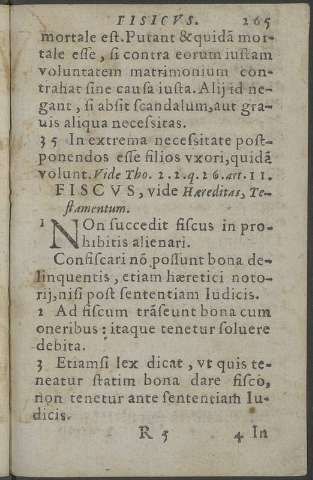 FISICVS. 265
mortale est. Putant & quidã mor-
tale esse, si contra eorum iustam
voluntatem matrimonium con-
trahat sine causa iusta. Alij id ne-
gant, si absit scandalum, aut gra-
uis aliqua necessitas.
35 In extrema necessitate post-
ponendos esse filios vxori, quidã
volunt. Vide Tho. 2. 2. q. 26. art. 11.
FISCVS, vide Hæreditas, Te-
stamentum.
1 NOn succedit fiscus in pro-
hibitis alienari.
Confiscari nõ possunt bona de-
linquentis, etiam hæretici noto-
rij, nisi post sententiam Iudicis.
2 Ad fiscum trãseunt bona cum
oneribus: itaque tenetur soluere
debita.
3 Etiamsi lex dicat, vt quis te-
neatur statim bona dare fisco,
non tenetur ante sententiam Iu-
dicis.
R 5 4 In